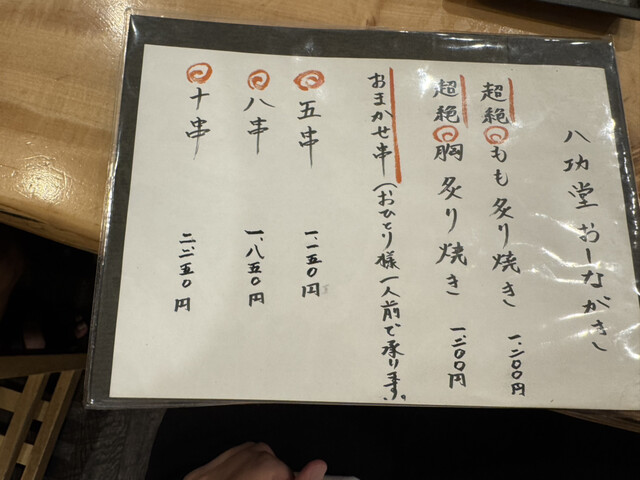 八功堂 おーながき
超絶 もも炙り焼き 一、二〇〇円
超絶 胸炙り焼き 一、二〇〇円
おまかせ串(おひとり様一人前で承ります。
五串 一、一五〇円
八串 一、八五〇円
十串 二、二五〇円